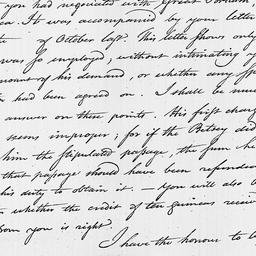 you had negotiated with great
ea. It was accompanied by your letter
of October last. This letter shews only
was so employed, without intimating
amount of his demand, or whether any
had been agreed on. I shall be much
answer on these points. His first charge
seems improper; for if the Betsey did
him the stipulated passage, the sum he
that passage should have been refunded
his duty to obtain it. — You will also
whether the credit of ten guineas receiv
you is right.
I have the honour to b